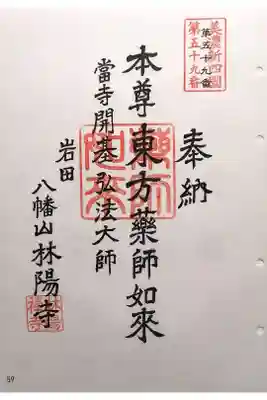 美濃新四国
第五十九番
第五十九番
奉納
本尊東方藥師如來
當寺開基弘法大師
岩田
八幡山林陽寺
59